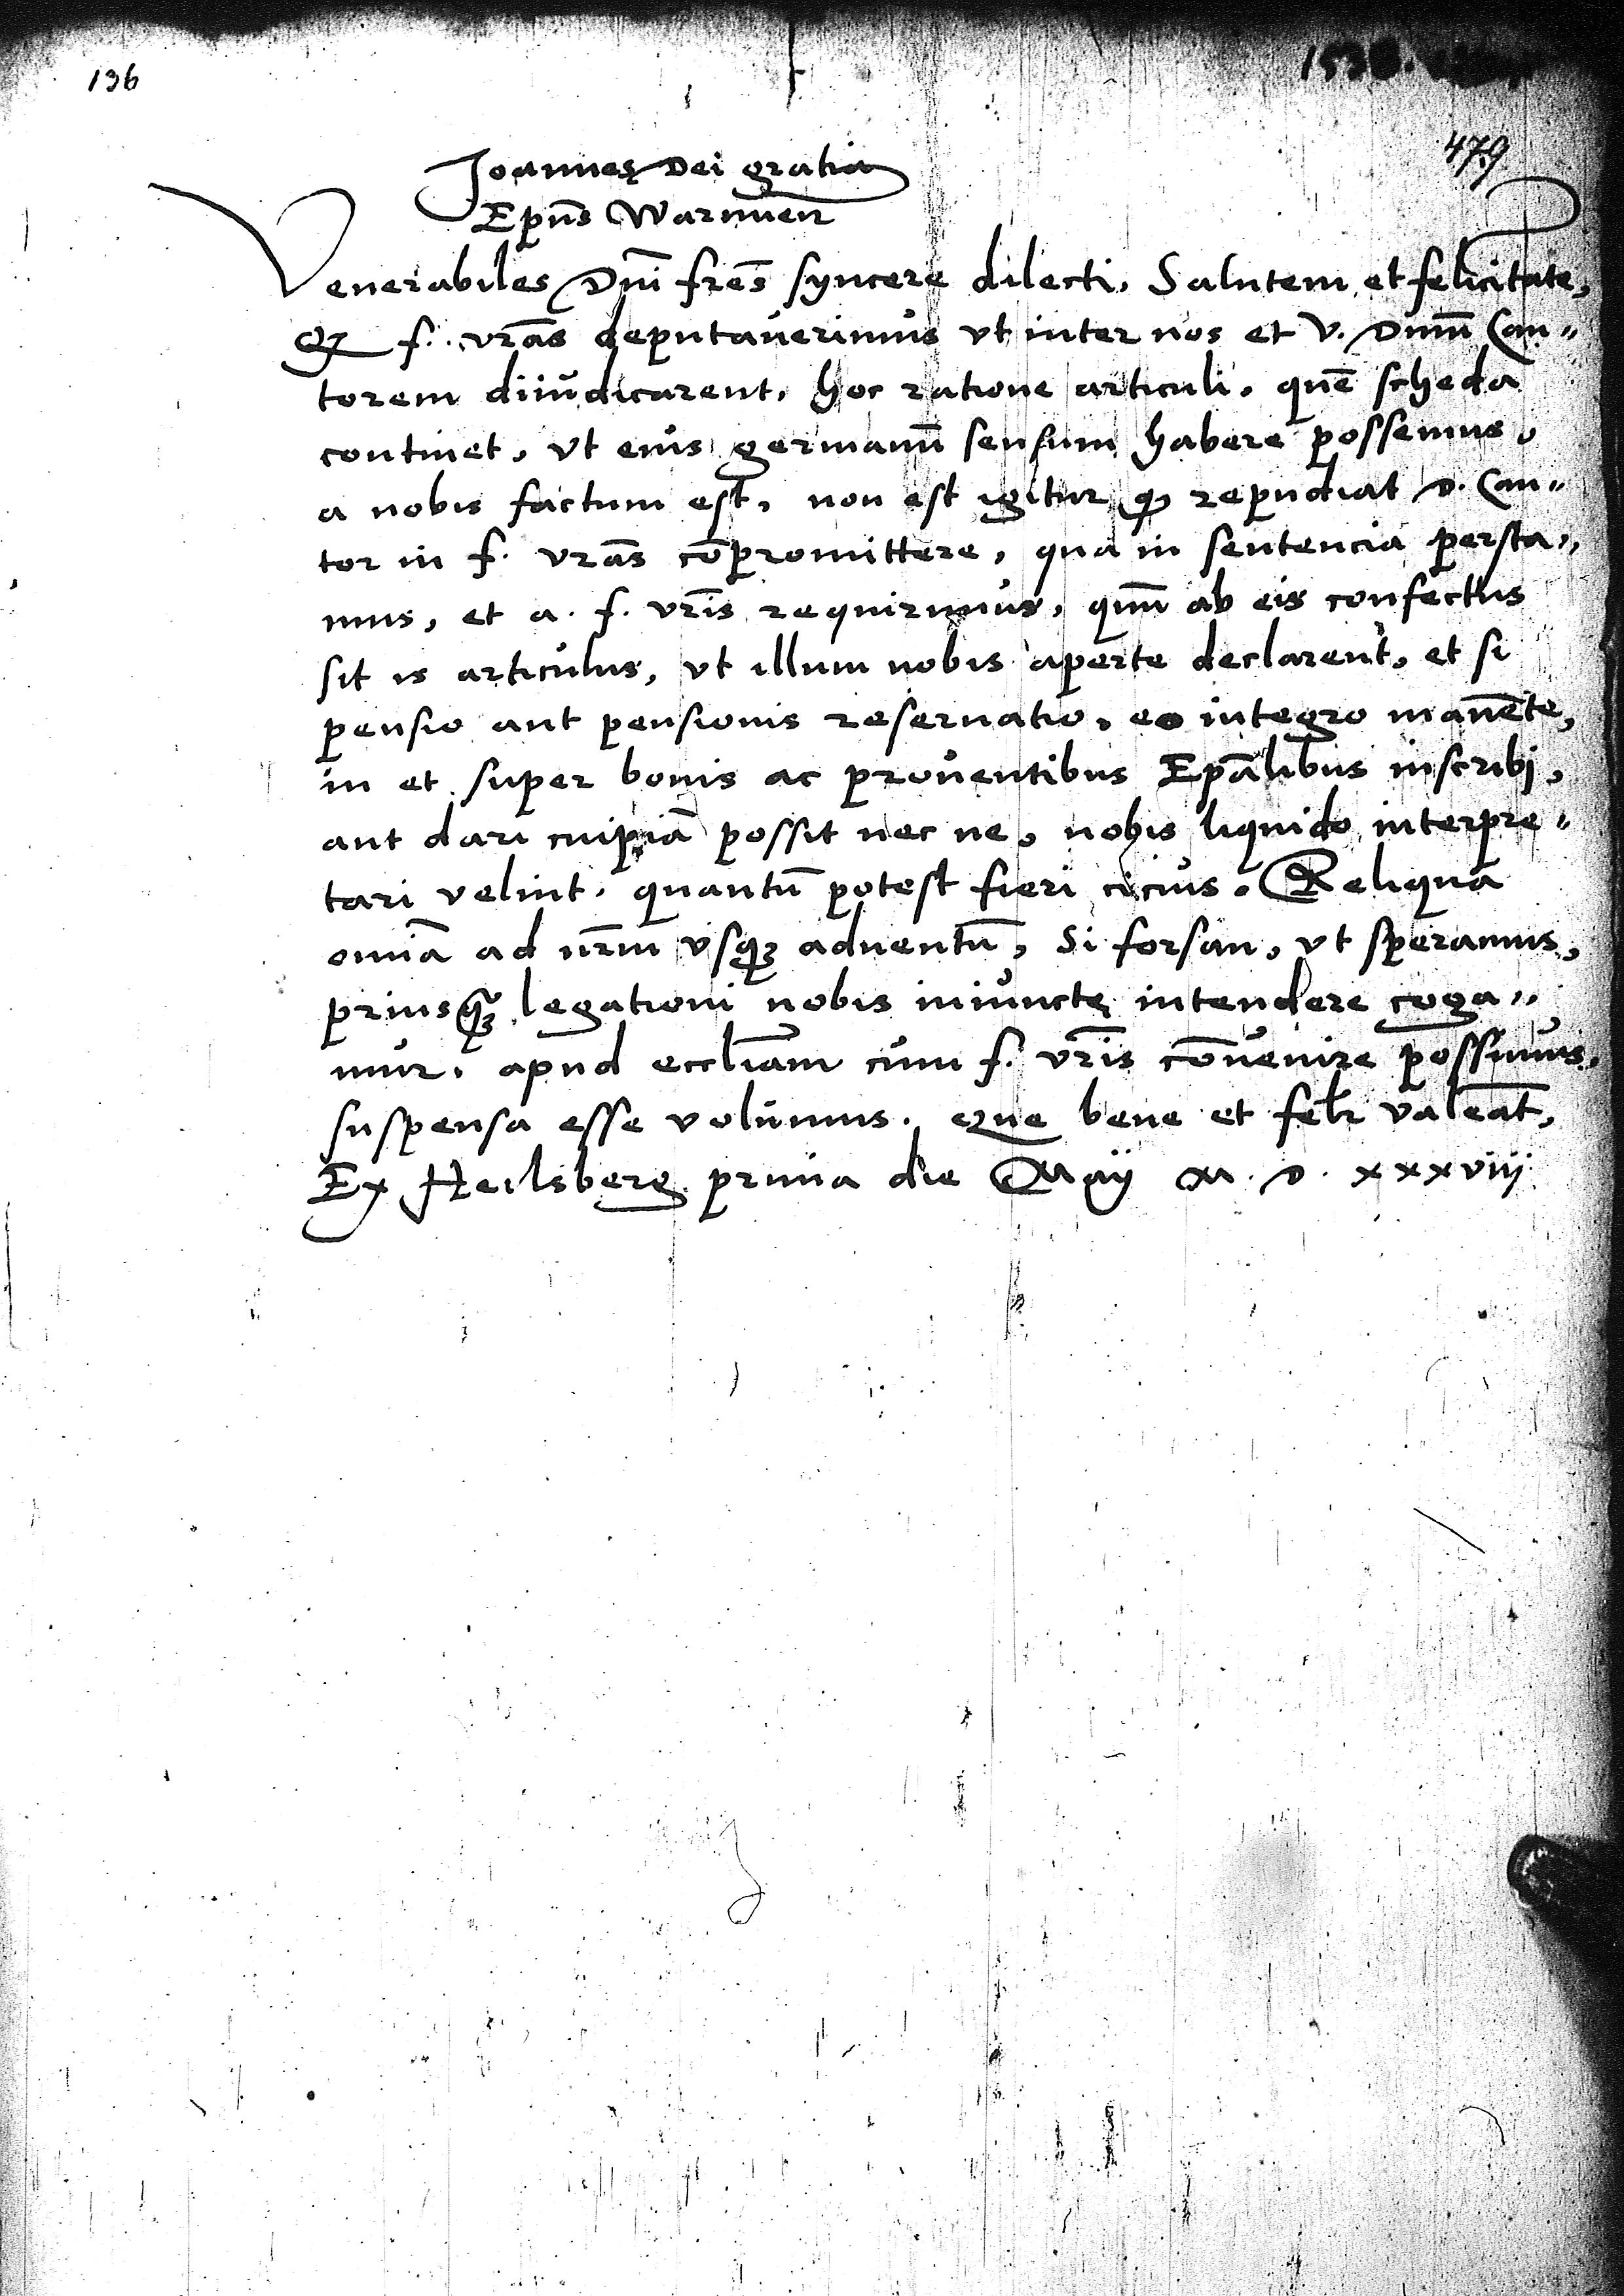 136
1538.
479
Joannes Dei gratia
Epūs Warmień
Venerabiles Dnī frēs syncere dilecti, Salutem et felicitatē,
Qʒ f. vrās deputaverimus vt inter nos et V. Dnm̄ Can„
torem diiudicarent, hoc ratione articuli, quē scheda
continet, vt eius germanū sensum habere possemus,
a nobis factum est, non est igitur qʒ repudiat D. Can„
tor in f. vrās cōpromittere, qua in sentencia persta„
mus, et a. f. vrīs requirimus, quū ab eis confectus
sit is articulus, vt illum nobis aperte declarent, et si
pensio aut pensionis reservatio, eo integro manēte,
in et super bonis ac proventibus Epālibus inscribi,
aut dari cuipiā possit nec ne, nobis liquido interpre„
tari velint, quantū potest fieri cicius. Reliqua
omīa ad nrm̄ vsqʒ adventū, si forsan, vt speramus,
priusqʒ legationi nobis iniunctę intendere coga„
mur, apud eccliām cum f. vrīs cōvenire possimus,
suspensa esse volumus. Quę bene et felr valeāt,
Ex Heilsberg prima die Maij M. D. xxxviij